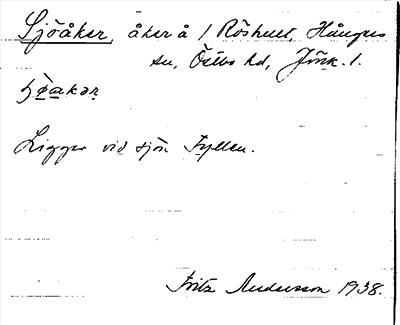 Sjöåker, åker å / Röshult, Hånger
sn, Östbo hd, Jönk. l.
Ligger vid sjön Fyllen.
Fritz Andersson 1938.